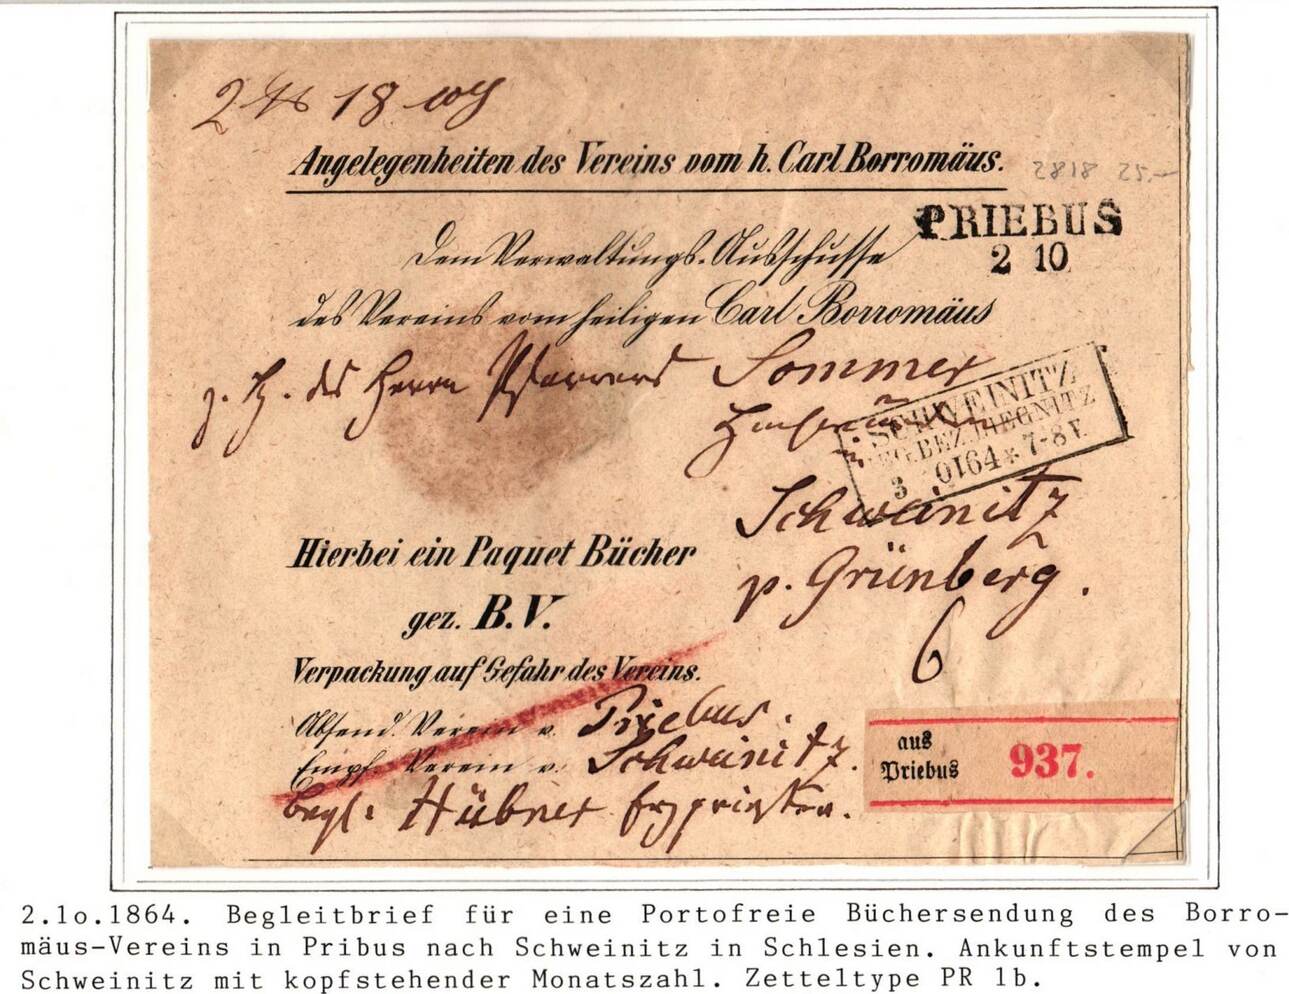 18
Angelegenheiten des Vereins vom h. Carl Borromäus.
2818 25.—
PRIEBUS
2 10
Dem Verwaltungs-Ausschusse
des Vereins vom heiligen Carl Borromäus
z. H. des Herrn Pfarrers Sommer
SCHWEINITZ
REG.BEZ.LIEGNITZ
3 0164 * 7-8 V.
Schweinitz
p. Grünberg.
Hierbei ein Paquet Bücher
gez. B.V.
6
Verpackung auf Gefahr des Vereins.
Absend. Verein v. Priebus.
Empf. Verein v. Schweinitz.
Hübner Erzpriester.
aus
Priebus
937.
2.1o.1864. Begleitbrief für eine Portofreie Büchersendung des Borro-
mäus-Vereins in Pribus nach Schweinitz in Schlesien. Ankunftstempel von
Schweinitz mit kopfstehender Monatszahl. Zetteltype PR 1b.